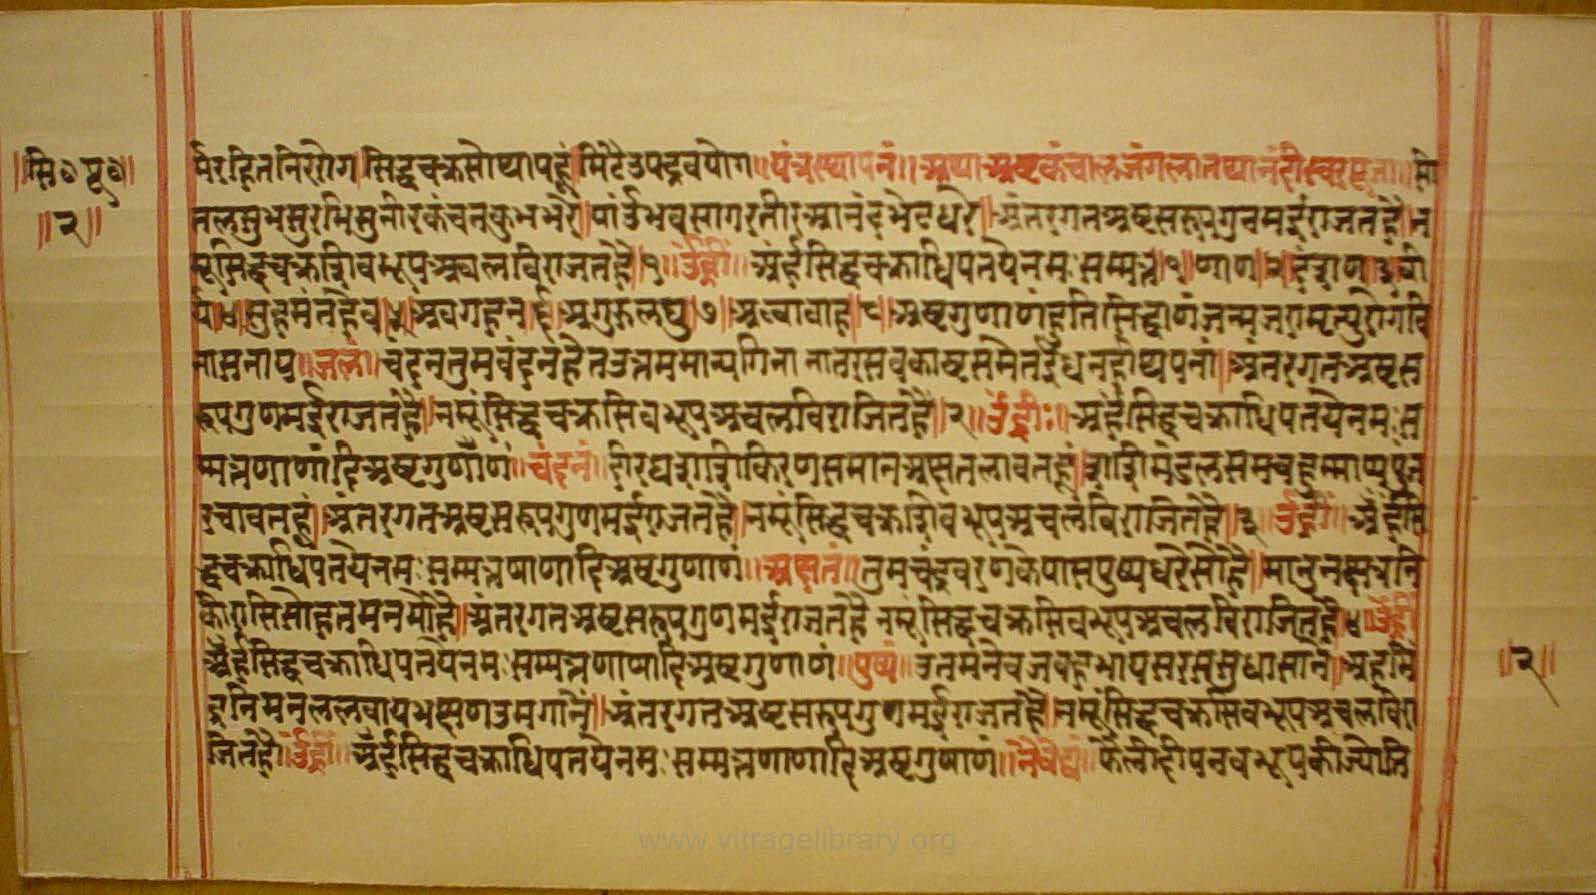 ॥सि०पू०॥
॥२॥
र्मरहितनिररोग।सिद्धचक्रसोथापहूं।मिटैउपद्रवयोग॥यंत्रस्थापनं॥अथाअष्टकंचालजंगलातथानंदीस्वरपूजा॥
तलसुभसुरभिसुनीरकंचनकुभभरै। पांऊंभवसागरतीरआनंदभेटधरे॥अंतरगतअष्टसरूपगुनमईराजतहै।न
मूसिद्धचक्रशिवभूपअचलविराजतहै।१।ॐह्रीं॥अर्हंसिद्धचक्राधिपतयेनमःसम्मत्त।१।णाण।२।दंशण।३।वी
र्य।४।सुहमंतहेव।५।अवगहन।६।अगुरुलघु।७।अव्वावाह।८।अष्टगुणाणंहतिसिद्धाणंजन्मजरामृत्युरोगंवि
नासनाय॥जलं॥चंदनतुमवंदनहेतउत्तममान्यगिना नातरसबकाष्टसमेतईंधनहीथपना॥अंतरगतअष्टस
रूपगुणमईराजतहै।नमूंसिद्धचक्रसिवभूपअचलविराजितहै।२॥ॐह्रीं॥अर्हंसिद्धचक्राधिपतयेनमःस
म्मत्तणाणादिअष्टगुणाणं॥चंदनं॥हीरघशशिकिरणसमानअक्षतलावतहूं।शशिमंडलसम
रचावतहूं।अंतरगतअष्टसरूपगुणमईराजतहै।नमूंसिद्धचक्रशिवभूपअचलविराजितहै।३॥ॐह्रीं॥अर्हंसि
द्धचक्राधिपतयेनमःसम्मत्तणाणादिअष्टगुणाणं॥अक्षतं॥तुमचंद्रवरणकेपासपुष्पधरेसोहै।मानुनक्षत्रनि
कीरासिसोहतमनमोहै।अंतरगतअष्टसरूपगुणमईराजतहै नमूसिद्धचक्रसिवभूपअचलविराजितहै।४।ॐह्रीं
अर्हंसिद्धचक्राधिपतयेनमःसम्मत्तणाणादिअष्टगुणाणं॥पुष्पं॥उतमनेवजबहभायसरससुधासाने।अहमि
द्रनिमनललवायभक्षणउमगाने॥अंतरगतअष्टसरूपगुणमईराजतहै।नमूंसिद्धचक्रसिवभूपअचलविरा
जितहै।ॐह्रीं॥अर्हंसिद्धचक्राधिपतयेनमःसम्मत्तणाणादिअष्टगुणाणं॥नैवेद्यं॥फैलीदीपनवभूपकीज्योति
॥२॥
www.vitragelibrary.org